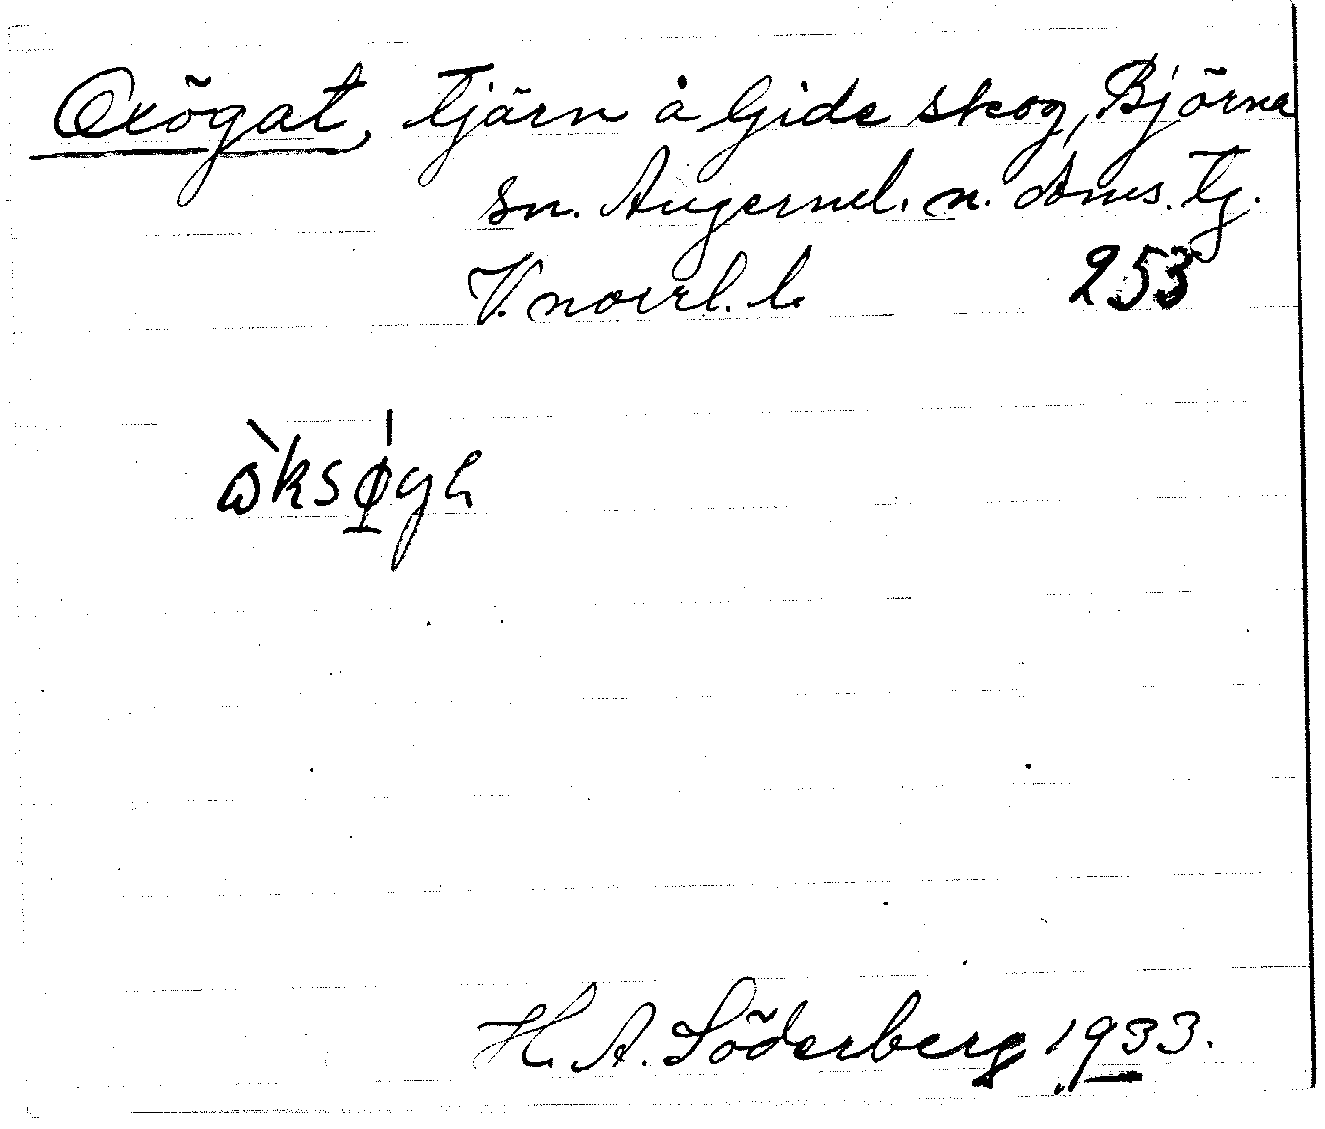 Oxögat, tjärn å Gide skog, Björna
sn. Ångerml. n. doms. tg.
V. norrl. l. 253
H. A. Söderberg 1933.